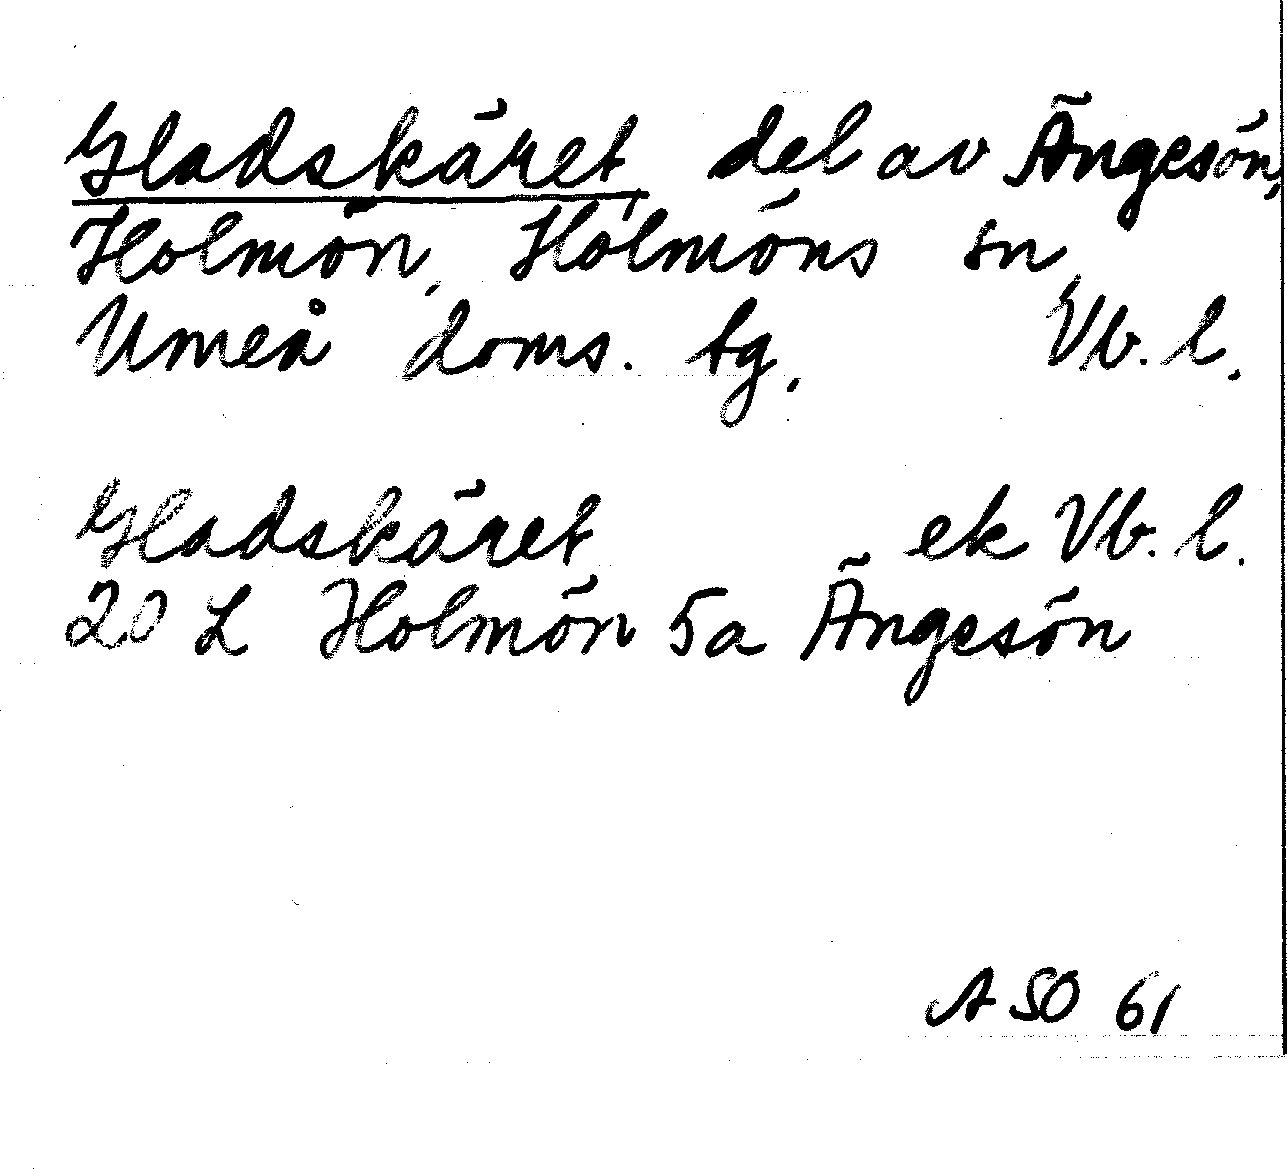 Gladskäret, del av Ängesön,
Holmön, Holmöns sn,
Umeå doms. tg, Vb. l.
Gladskäret ek Vb. l.
20 L Holmön 5a Ängesön
A SO 61